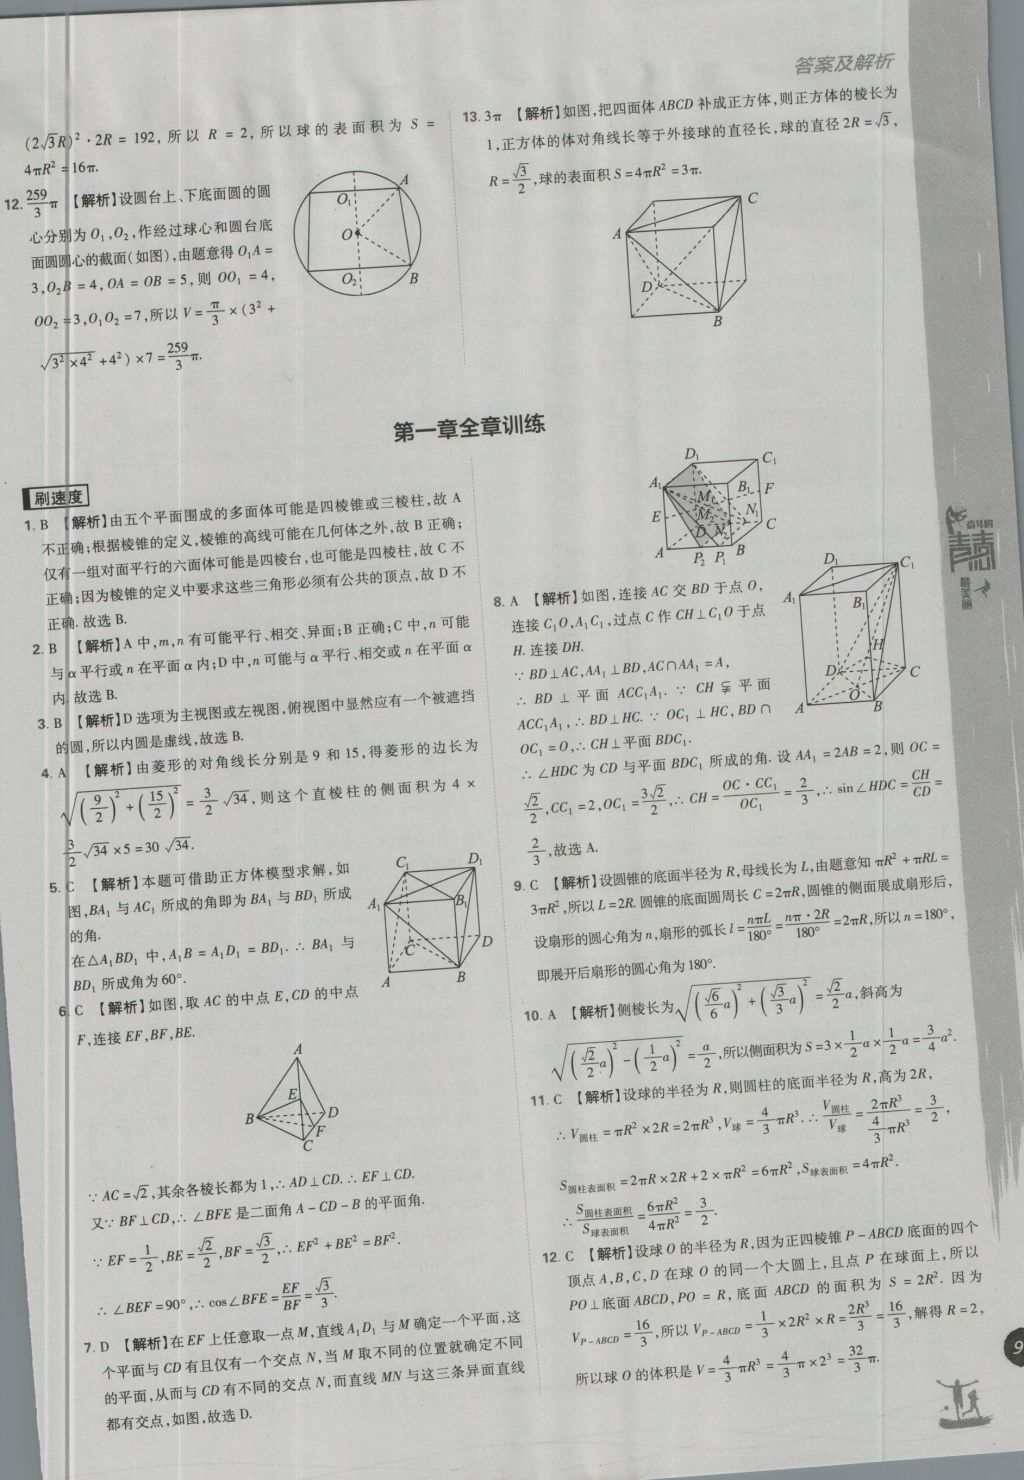 答案及解析
(2√3R)²·2R = 192, 所以 R = 2, 所以球的表面积为 S =
4πR² = 16π.
12. 259/3 π 【解析】设圆台上、下底面圆的圆
心分别为 O₁,O₂,作经过球心和圆台底
面圆圆心的截面(如图),由题意得 O₁A =
3,O₂B = 4,OA = OB = 5,则 OO₁ = 4,
OO₂ = 3,O₁O₂ = 7,所以 V = π/3 × (3² +
√(3² × 4²) + 4²) × 7 = 259/3 π.
A
O₁
O
O₂
B
13. 3π 【解析】如图,把四面体 ABCD 补成正方体,则正方体的棱长为
1,正方体的体对角线长等于外接球的直径长,球的直径 2R = √3,
R = √3/2,球的表面积 S = 4πR² = 3π.
C
A
D
B
第一章全章训练
刷速度
1. B 【解析】由五个平面围成的多面体可能是四棱锥或三棱柱,故 A
不正确;根据棱锥的定义,棱锥的高线可能在几何体之外,故 B 正确;
仅有一组对面平行的六面体可能是四棱台,也可能是四棱柱,故 C 不
正确;因为棱锥的定义中要求这些三角形必须有公共的顶点,故 D 不
正确. 故选 B.
2. B 【解析】A 中,m,n 有可能平行、相交、异面;B 正确;C 中,n 可能
与 α 平行或 n 在平面 α 内;D 中,n 可能与 α 平行、相交或 n 在平面 α
内. 故选 B.
3. B 【解析】D 选项为主视图或左视图,俯视图中显然应有一个被遮挡
的圆,所以内圆是虚线,故选 B.
4. A 【解析】由菱形的对角线长分别是 9 和 15,得菱形的边长为
√((9/2)² + (15/2)²) = 3/2 √34,则这个直棱柱的侧面积为 4 ×
3/2 √34 × 5 = 30 √34.
5. C 【解析】本题可借助正方体模型求解,如
图,BA₁ 与 AC₁ 所成的角即为 BA₁ 与 BD₁ 所成
的角.
在△A₁BD₁ 中,A₁B = A₁D₁ = BD₁. ∴ BA₁ 与
BD₁ 所成角为 60°.
C₁
D₁
A₁
B₁
C
D
A
B
6. C 【解析】如图,取 AC 的中点 E,CD 的中点
F,连接 EF,BF,BE.
A
E
B
D
F
C
∵ AC = √2,其余各棱长都为 1,∴ AD⊥CD. ∴ EF⊥CD.
又∵ BF⊥CD,∴ ∠BFE 是二面角 A-CD-B 的平面角.
∵ EF = 1/2,BE = √2/2,BF = √3/2,∴ EF² + BE² = BF².
∴ ∠BEF = 90°,∴ cos∠BFE = EF/BF = √3/3.
7. D 【解析】在 EF 上任意取一点 M,直线 A₁D₁ 与 M 确定一个平面,这
个平面与 CD 有且仅有一个交点 N,当 M 取不同的位置就确定不同
的平面,从而与 CD 有不同的交点 N,而直线 MN 与这三条异面直线
都有交点,如图,故选 D.
D₁
C₁
A₁
B₁
F
M₁
E
M₂
N₁
D
N₂
C
A
P₂
P₁
B
8. A 【解析】如图,连接 AC 交 BD 于点 O,
连接 C₁O,A₁C₁,过点 C 作 CH⊥C₁O 于点
H. 连接 DH.
∵ BD⊥AC,AA₁⊥BD,AC∩AA₁ = A,
∴ BD ⊥ 平面 ACC₁A₁. ∵ CH ⫋ 平面
ACC₁A₁,∴ BD⊥HC. ∵ OC₁ ⊥ HC,BD ∩
OC₁ = O,∴ CH⊥平面 BDC₁.
∴ ∠HDC 为 CD 与平面 BDC₁ 所成的角. 设 AA₁ = 2AB = 2,则 OC =
√2/2,CC₁ = 2,OC₁ = 3√2/2,∴ CH = OC·CC₁/OC₁ = 2/3,∴ sin∠HDC = CH/CD =
2/3,故选 A.
D₁
C₁
A₁
B₁
H
D
C
O
A
B
9. C 【解析】设圆锥的底面半径为 R,母线长为 L,由题意知 πR² + πRL =
3πR²,所以 L = 2R. 圆锥的底面圆周长 C = 2πR,圆锥的侧面展成扇形后,
设扇形的圆心角为 n,扇形的弧长 l = nπL/180° = nπ·2R/180° = 2πR,所以 n = 180°,
即展开后扇形的圆心角为 180°.
10. A 【解析】侧棱长为 √((√6/6 a)² + (√3/3 a)²) = √2/2 a,斜高为
√((√2/2 a)² - (1/2 a)²) = a/2,所以侧面积为 S = 3 × 1/2 a × 1/2 a = 3/4 a².
11. C 【解析】设球的半径为 R,则圆柱的底面半径为 R,高为 2R,
∴ V圆柱 = πR² × 2R = 2πR³,V球 = 4/3 πR³. ∴ V圆柱/V球 = 2πR³/(4/3 πR³) = 3/2,
S圆柱表面积 = 2πR × 2R + 2 × πR² = 6πR²,S球表面积 = 4πR².
∴ S圆柱表面积/S球表面积 = 6πR²/4πR² = 3/2.
12. C 【解析】设球 O 的半径为 R,因为正四棱锥 P-ABCD 底面的四个
顶点 A,B,C,D 在球 O 的同一个大圆上,且点 P 在球面上,所以
PO⊥底面 ABCD,PO = R,底面 ABCD 的面积为 S = 2R². 因为
V_P-ABCD = 16/3,所以 V_P-ABCD = 1/3 × 2R² × R = 2R³/3 = 16/3,解得 R = 2,
所以球 O 的体积是 V = 4/3 πR³ = 4/3 π × 2³ = 32/3 π.
奋斗的
青春
最美丽
9